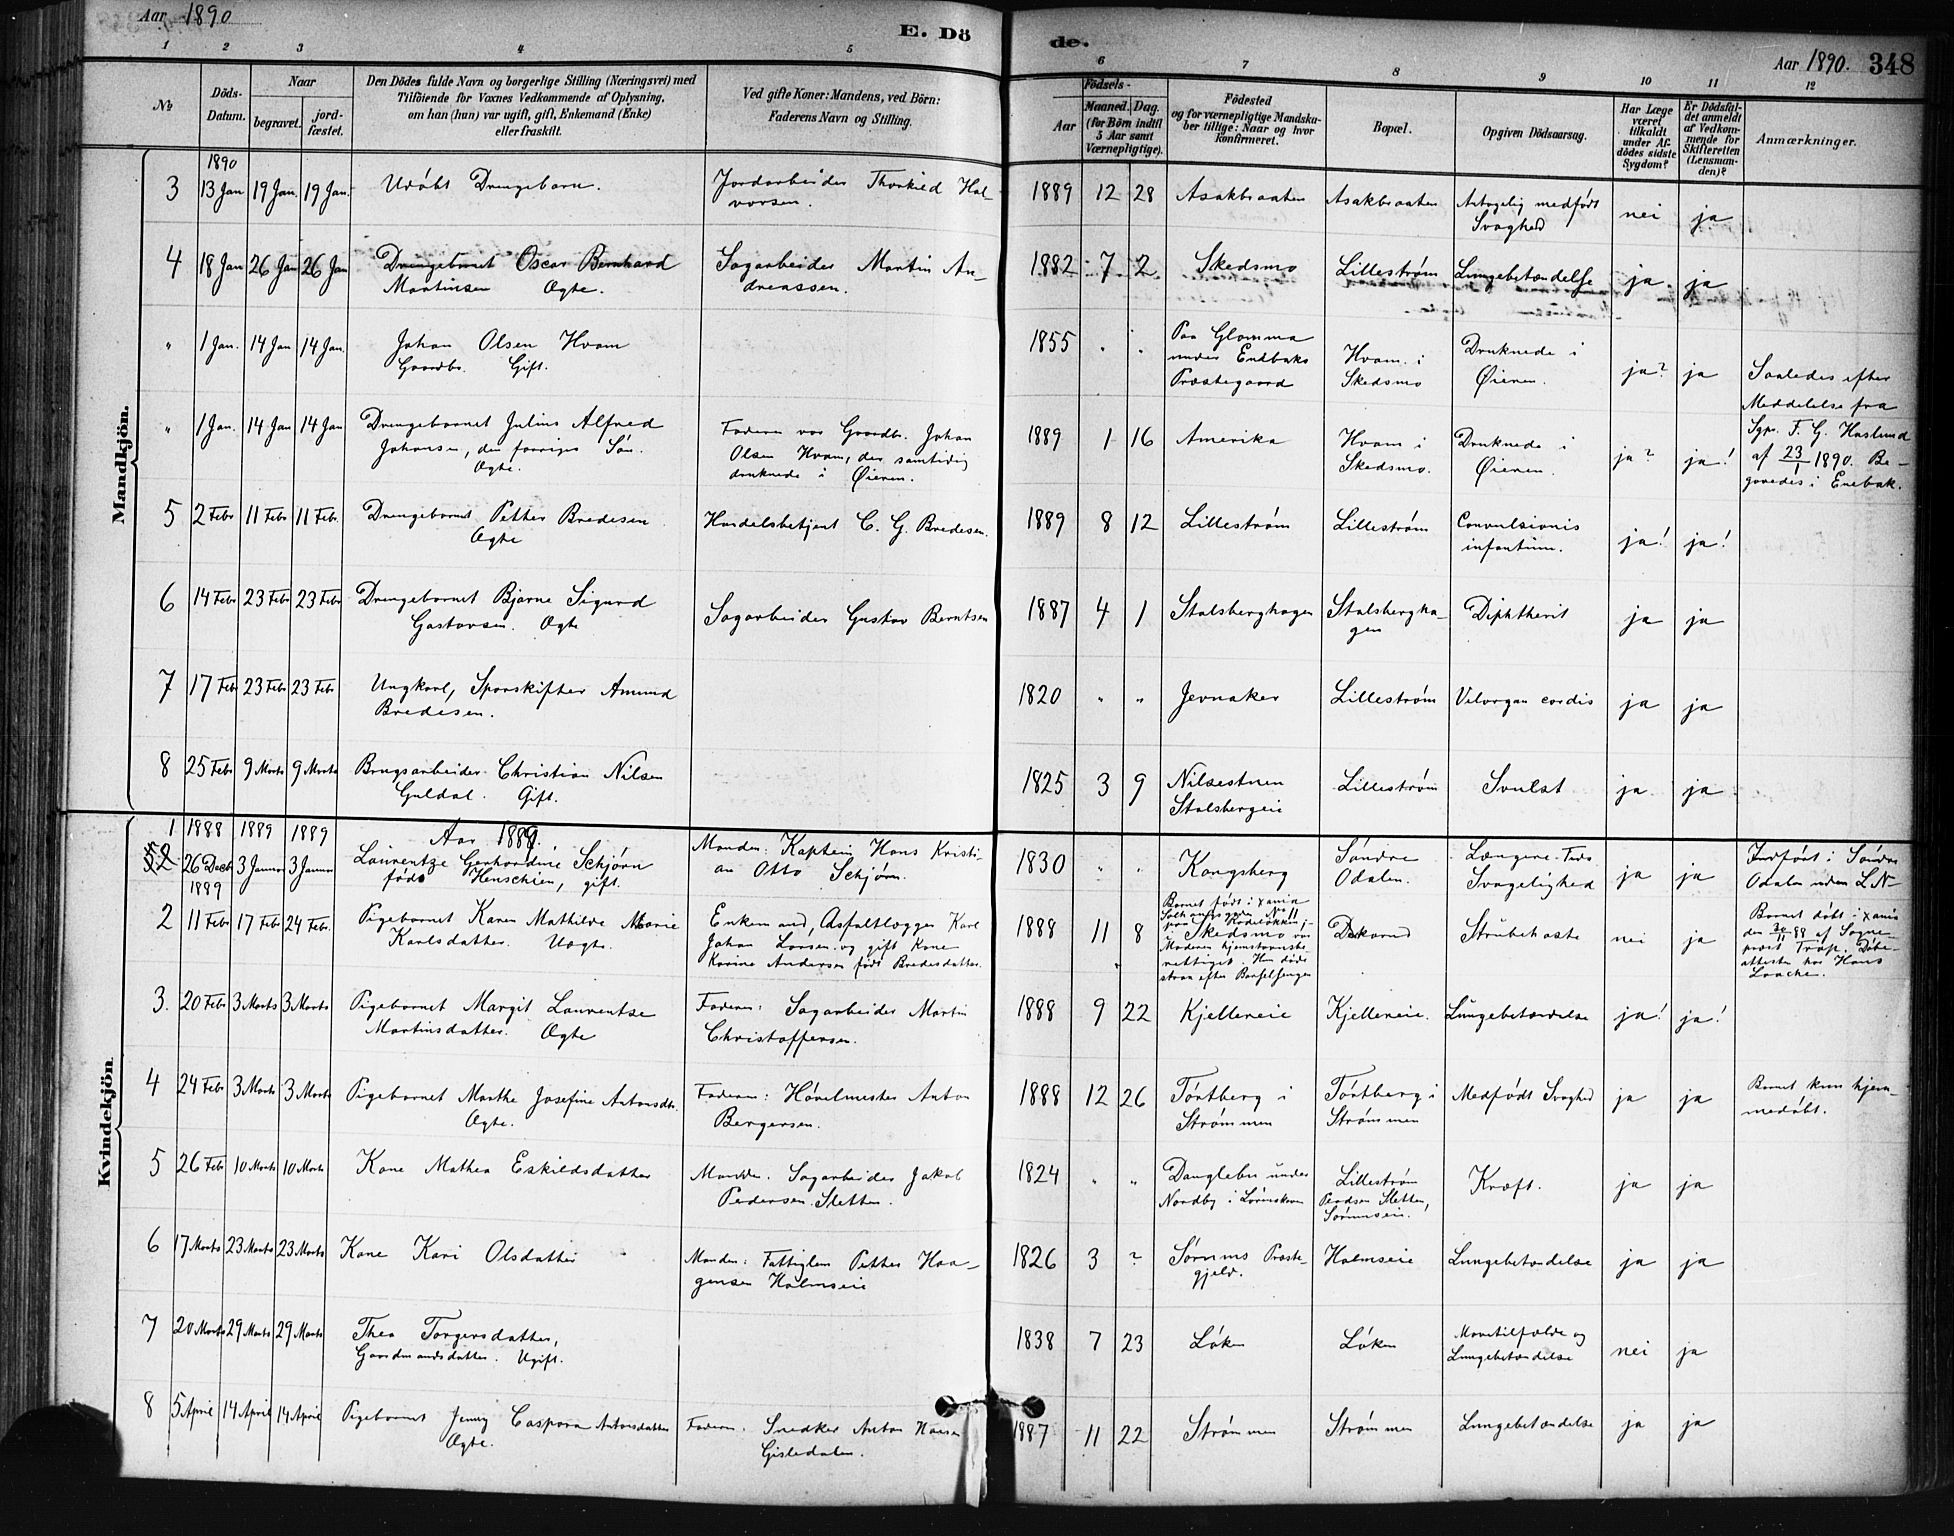 Aar 1890
E. Döde.
Aar 1890. 348
1 2 3 4 5 6 7 8 9 10 11 12
№
Döds-Datum.
Naar
begravet.
jordfæstet.
Den Dödes fulde Navn og borgerlige Stilling (Næringsvei) med
Tilföiende for Voxnes Vedkommende af Oplysning,
om han (hun) var ugift, gift, Enkemand (Enke)
eller fraskilt.
Ved gifte Koner: Mandens, ved Börn:
Faderens Navn og Stilling.
Födsels-
Aar
Maaned. Dag.
(for Börn indtil
5 Aar samt
Værnepligtige).
Födested
og for værnepligtige Mandskaber tillige: Naar og hvor
konfirmeret.
Bopæl.
Opgiven Dödsaarsag.
Har Læge
været
tilkaldt
under Afdödes sidste
Sygdom?
Er Dödsfaldet anmeldt
af Vedkommende for
Skifteretten
(Lensmanden)?
Anmærkninger.
Mandkjön.
1890
3 13 Jan 19 Jan. 19 Jan. Udöbt Drengebarn. Jordarbeider Thorkild Halvorsen. 1889 12 28 Asakbraaten Asakbraaten Antagelig medfödt Svaghed nei ja
4 18 Jan 26 Jan 26 Jan Drengebarnet Oscar Bernhard Martinsen Ægte. Sagarbeider Martin Andreassen. 1882 7 2 Skedsmo Lilleström Lungebetændelse ja ja
" 1 Jan. 14 Jan 14 Jan. Johan Olsen Hvam Gaardbr. Gift. 1855 " " Paa Glomma under Enebaks Præstegaard Hvam i Skedsmo Druknede i Øieren. ja? ja Saaledes efter
" 1 Jan. 14 Jan 14 Jan Drengebarnet Julius Alfred Johansen, den forriges Sön. Ægte. Faderen var Gaardbr. Johan Olsen Hvam, der samtidig druknede i Øieren. 1889 1 16 Amerika Hvam i Skedsmo. Druknede i Øieren. ja? ja! Meddelelse fra Sgpr. F. G. Haslund af 23/1 1890. Begravedes i Enebak.
5 2 Febr 11 Febr 11 Febr. Drengebarnet Petter Bredesen Ægte Handelsbetjent C. G. Bredesen. 1889 8 12 Lilleström Lilleström Convulsionis infantum. ja! ja!
6 14 Febr 23 Febr 23 Febr Drengebarnet Bjarne Sigurd Gustavsen. Ægte Sagarbeider Gustav Berntsen 1887 4 1 Stalsberghagen Stalsberghagen Diphtherit ja ja
7 17 Febr 23 Febr 23 Febr Ungkarl, Sporskifter Amund Bredesen. 1820 " " Jevnaker Lilleström Vit. organ cordis ja ja
8 25 Febr 9 Marts 9 Marts Brugsarbeider Christian Nilsen Guldal. Gift. 1825 3 9 Nilsestuen Stalsbergeie Lilleström Svulst ja ja
Kvindekjön
1888 1889 1889 Aar 1889.
1 26 Decb 3 Januar 3 Januar Laurentze Gerhardine Schjörn född Henschien, gift. Manden: Kaptein Hans Kristian Otto Schjörn. 1830 " " Kongsberg Söndre Odalen. Længere Tids Svagelighed ja ja Indfört i Söndre Odalen uden LN-
1889
2 11 Febr 17 Febr 24 Febr. Pigebarnet Karen Mathilde Marie Karlsdatter. Uægte. Enkemand, Asfaltlægger Karl Johan Larsen og gift Kone Karine Andersen födt Bredesdatter. 1888 11 8 Barnet födt i Xania No 11 paa Rodelökken; i Skedsmo var Moderen hjemstavnsberettiget. Hun döde strax efter Barselsengen Strubehoste nei ja Barnet döbt i Xania den 30/11 88 af Sogneprest Trap. Döbeattesten hos Hans Laache.
3. 20 Febr 3 Marts 3 Marts Pigebarnet Margit Laurentse Martinsdatter. Ægte Faderen: Sagarbeider Martin Christoffersen. 1888 9 22 Kjellereie Kjellereie. Lungebetændelse ja! ja!
4 24 Febr 3 Marts 3 Marts Pigebarnet Marthe Josefine Antonsdtr. Ægte. Faderen: Hövelmester Anton Bergersen. 1888 12 26 Törtberg i Strömmen Törtberg i Strömmen Medfödt Svaghed ja ja Barnet kun hjemmedöbt.
5 26 Febr 10 Marts 10 Marts Kone Mathea Eskildsdatter Manden. Sagarbeider Jakob Pedersen Sletten. 1824 " " Nordby i Lörenskoven Lilleström Sletten, Sörumseie. Kræft. ja ja
6 17 Marts 23 Marts 23 Marts Kone Kari Olsdatter Manden: Fattiglem Petter Haagensen Holmseie 1826 3 ? Sörums Præstegjeld. Holmseie Lungebetændelse ja ja
7 20 Marts 29 Marts 29 Marts Thea Torgersdatter, Gaardmandsdatter. Ugift. 1838 7 23 Löken Löken Mavetilfælde og Lungebetændelse nei ja
8 5 April 14 April 14 April Pigebarnet Jenny Caspara Antonsdatter Ægte. Faderen: Snedker Anton Hansen Gisledalen. 1887 11 22 Strömmen Strömmen Lungebetændelse ja ja